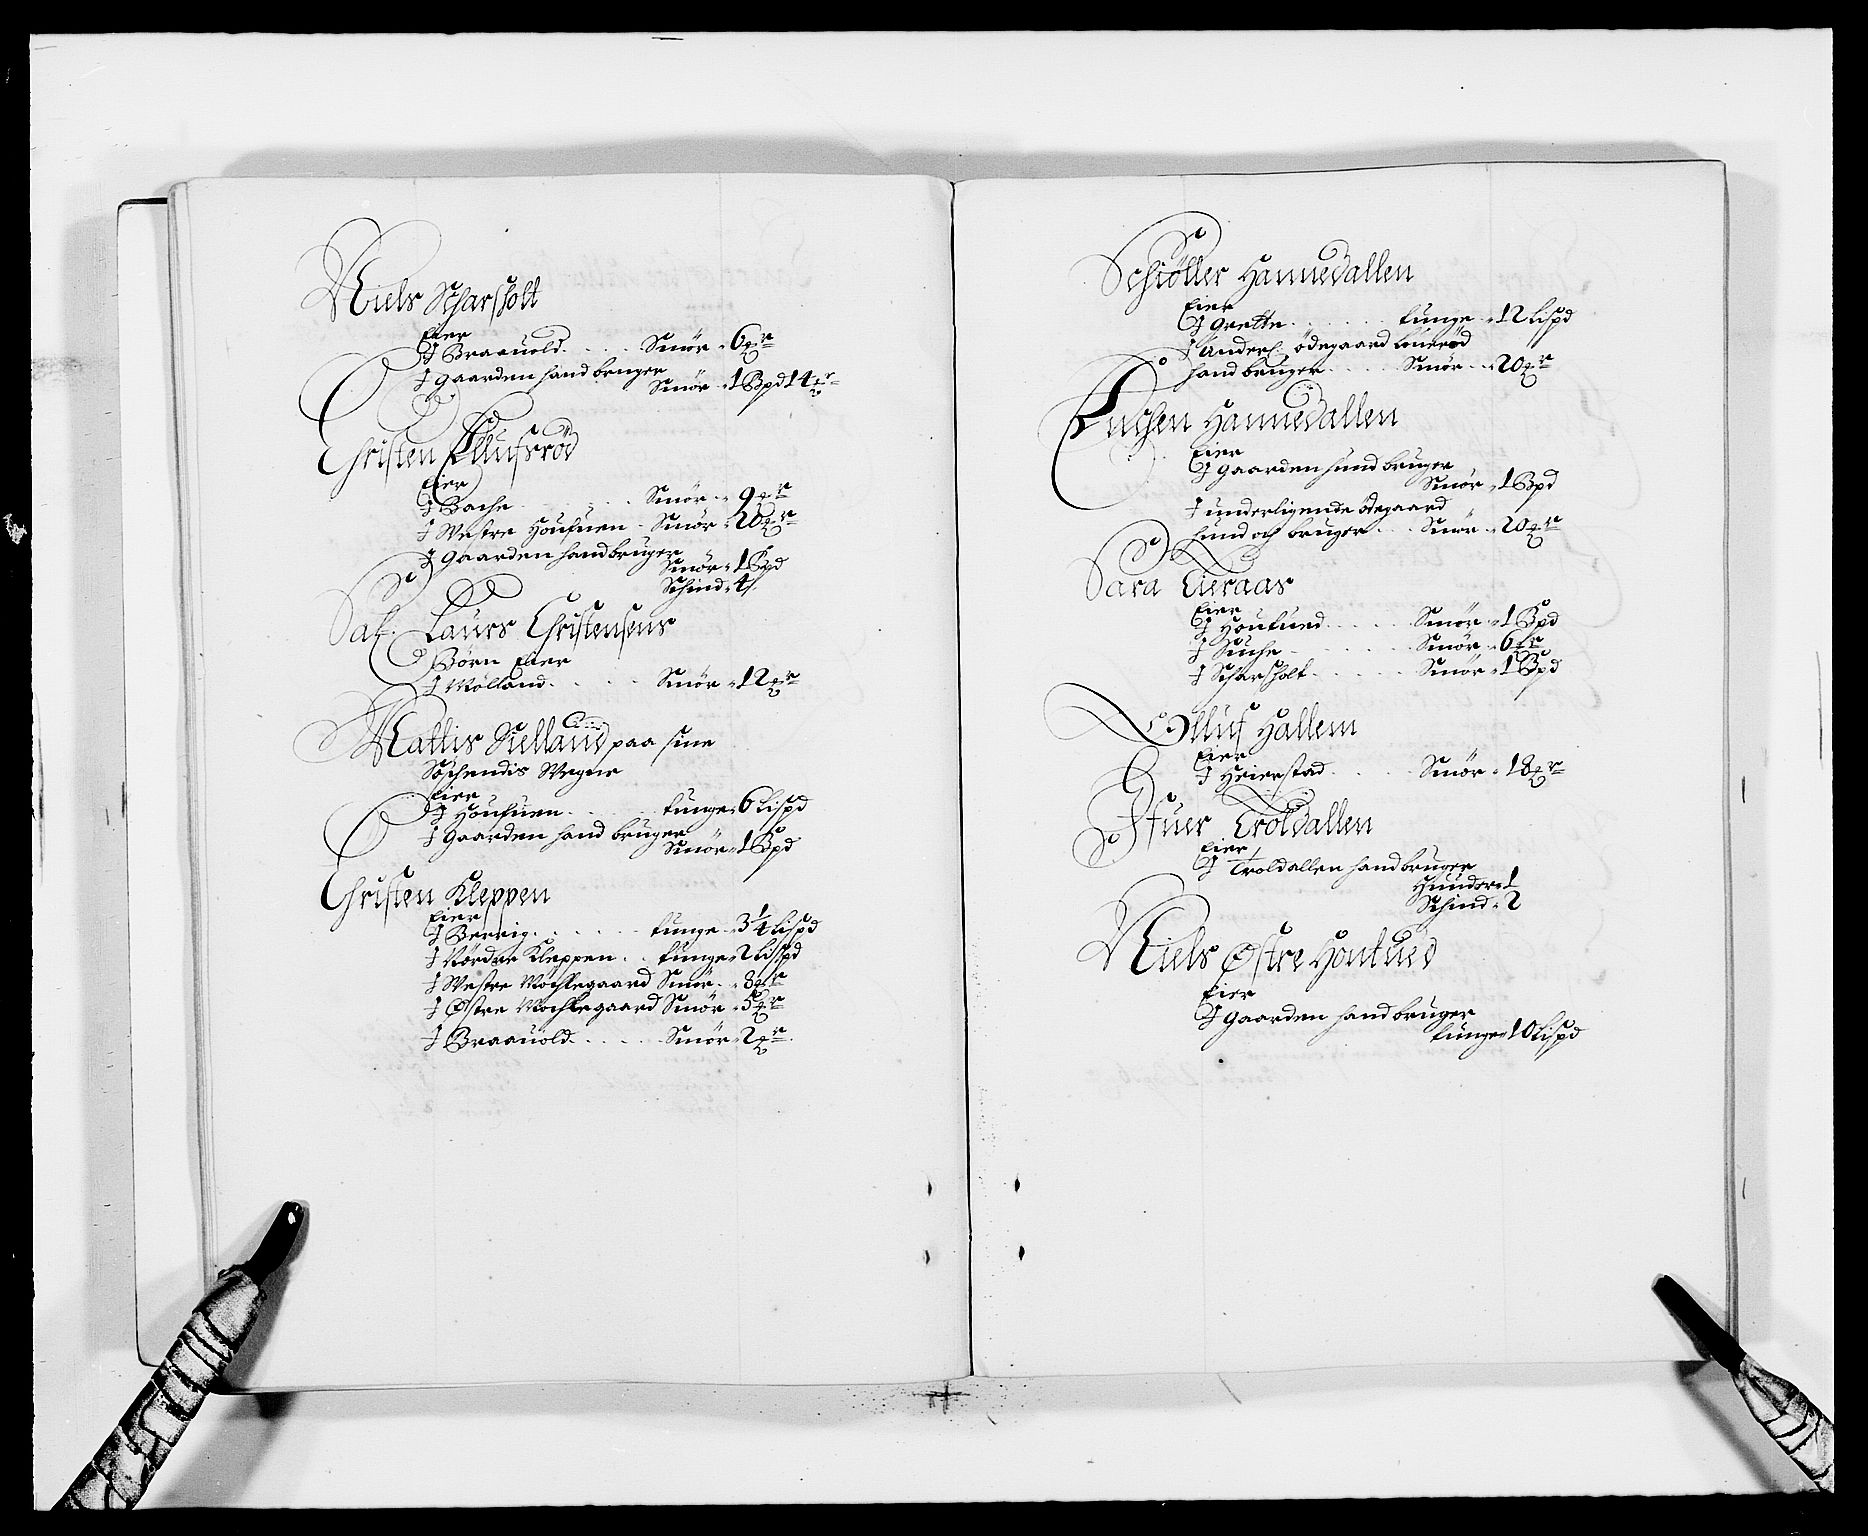 Niels Scharsholt
Eier
J Braauold . . . . Smör - 6 ℔r
J gaarden hand bruger
Smör - 1 Bpd 14 ℔r
Christen Ellufsröd
Eier
J Bache . . . . . . Smör - 9 ℔r
J Westre Houfuen . Smör - 20 ℔r
J gaarden hand bruger
Smör - 1 Bpd
Schind - 4
Sal. Laurs Christensens
Börn Eier
J Mölland . . . . Smör - 12 ℔r
Mattis Sielland paa sine
Söschendis Wegne
Eier
J Houfuen . . . . tunge - 6 Lispd
J gaarden hand bruger
Smör - 1 Bpd
Christen Kleppen
Eier
J Berrig . . . . . . tunge - 3 1/4 Lispd
J Nordre Kleppen . . tunge - 2 Lispd
J Westre Mochlegaard Smör - 8 ℔r
J Østre Mochlegaard Smör - 5 ℔r
J Braauold . . . . . Smör - 2 ℔r
Schiöller Hannedallen
Eier
J Grette . . . . . . tunge - 12 Lispd
J Underl. ödegaard
hand bruger . . . . Smör - 20 ℔r
Hannedallen
Eier
J gaarden hund bruger
Smör - 1 Bpd
J underligende ödegaard
hund och bruger . . . Smör - 20 ℔r
Sara Eieraas
Eier
J Houfued . . . . . Smör - 1 Bpd
J Suche . . . . . . Smör - 6 ℔r
J Scharsholt . . . . . Smör - 1 Bpd
Olluf Hallem
Eier
J Heierstad . . . . Smör - 18 ℔r
Ifuer Troldallen
Eier
J Troldallen hand bruger
Huuder - 1
Schind - 2
Niels Østre Houfued
Eier
J gaarden hand bruger
tunge - 10 Lispd